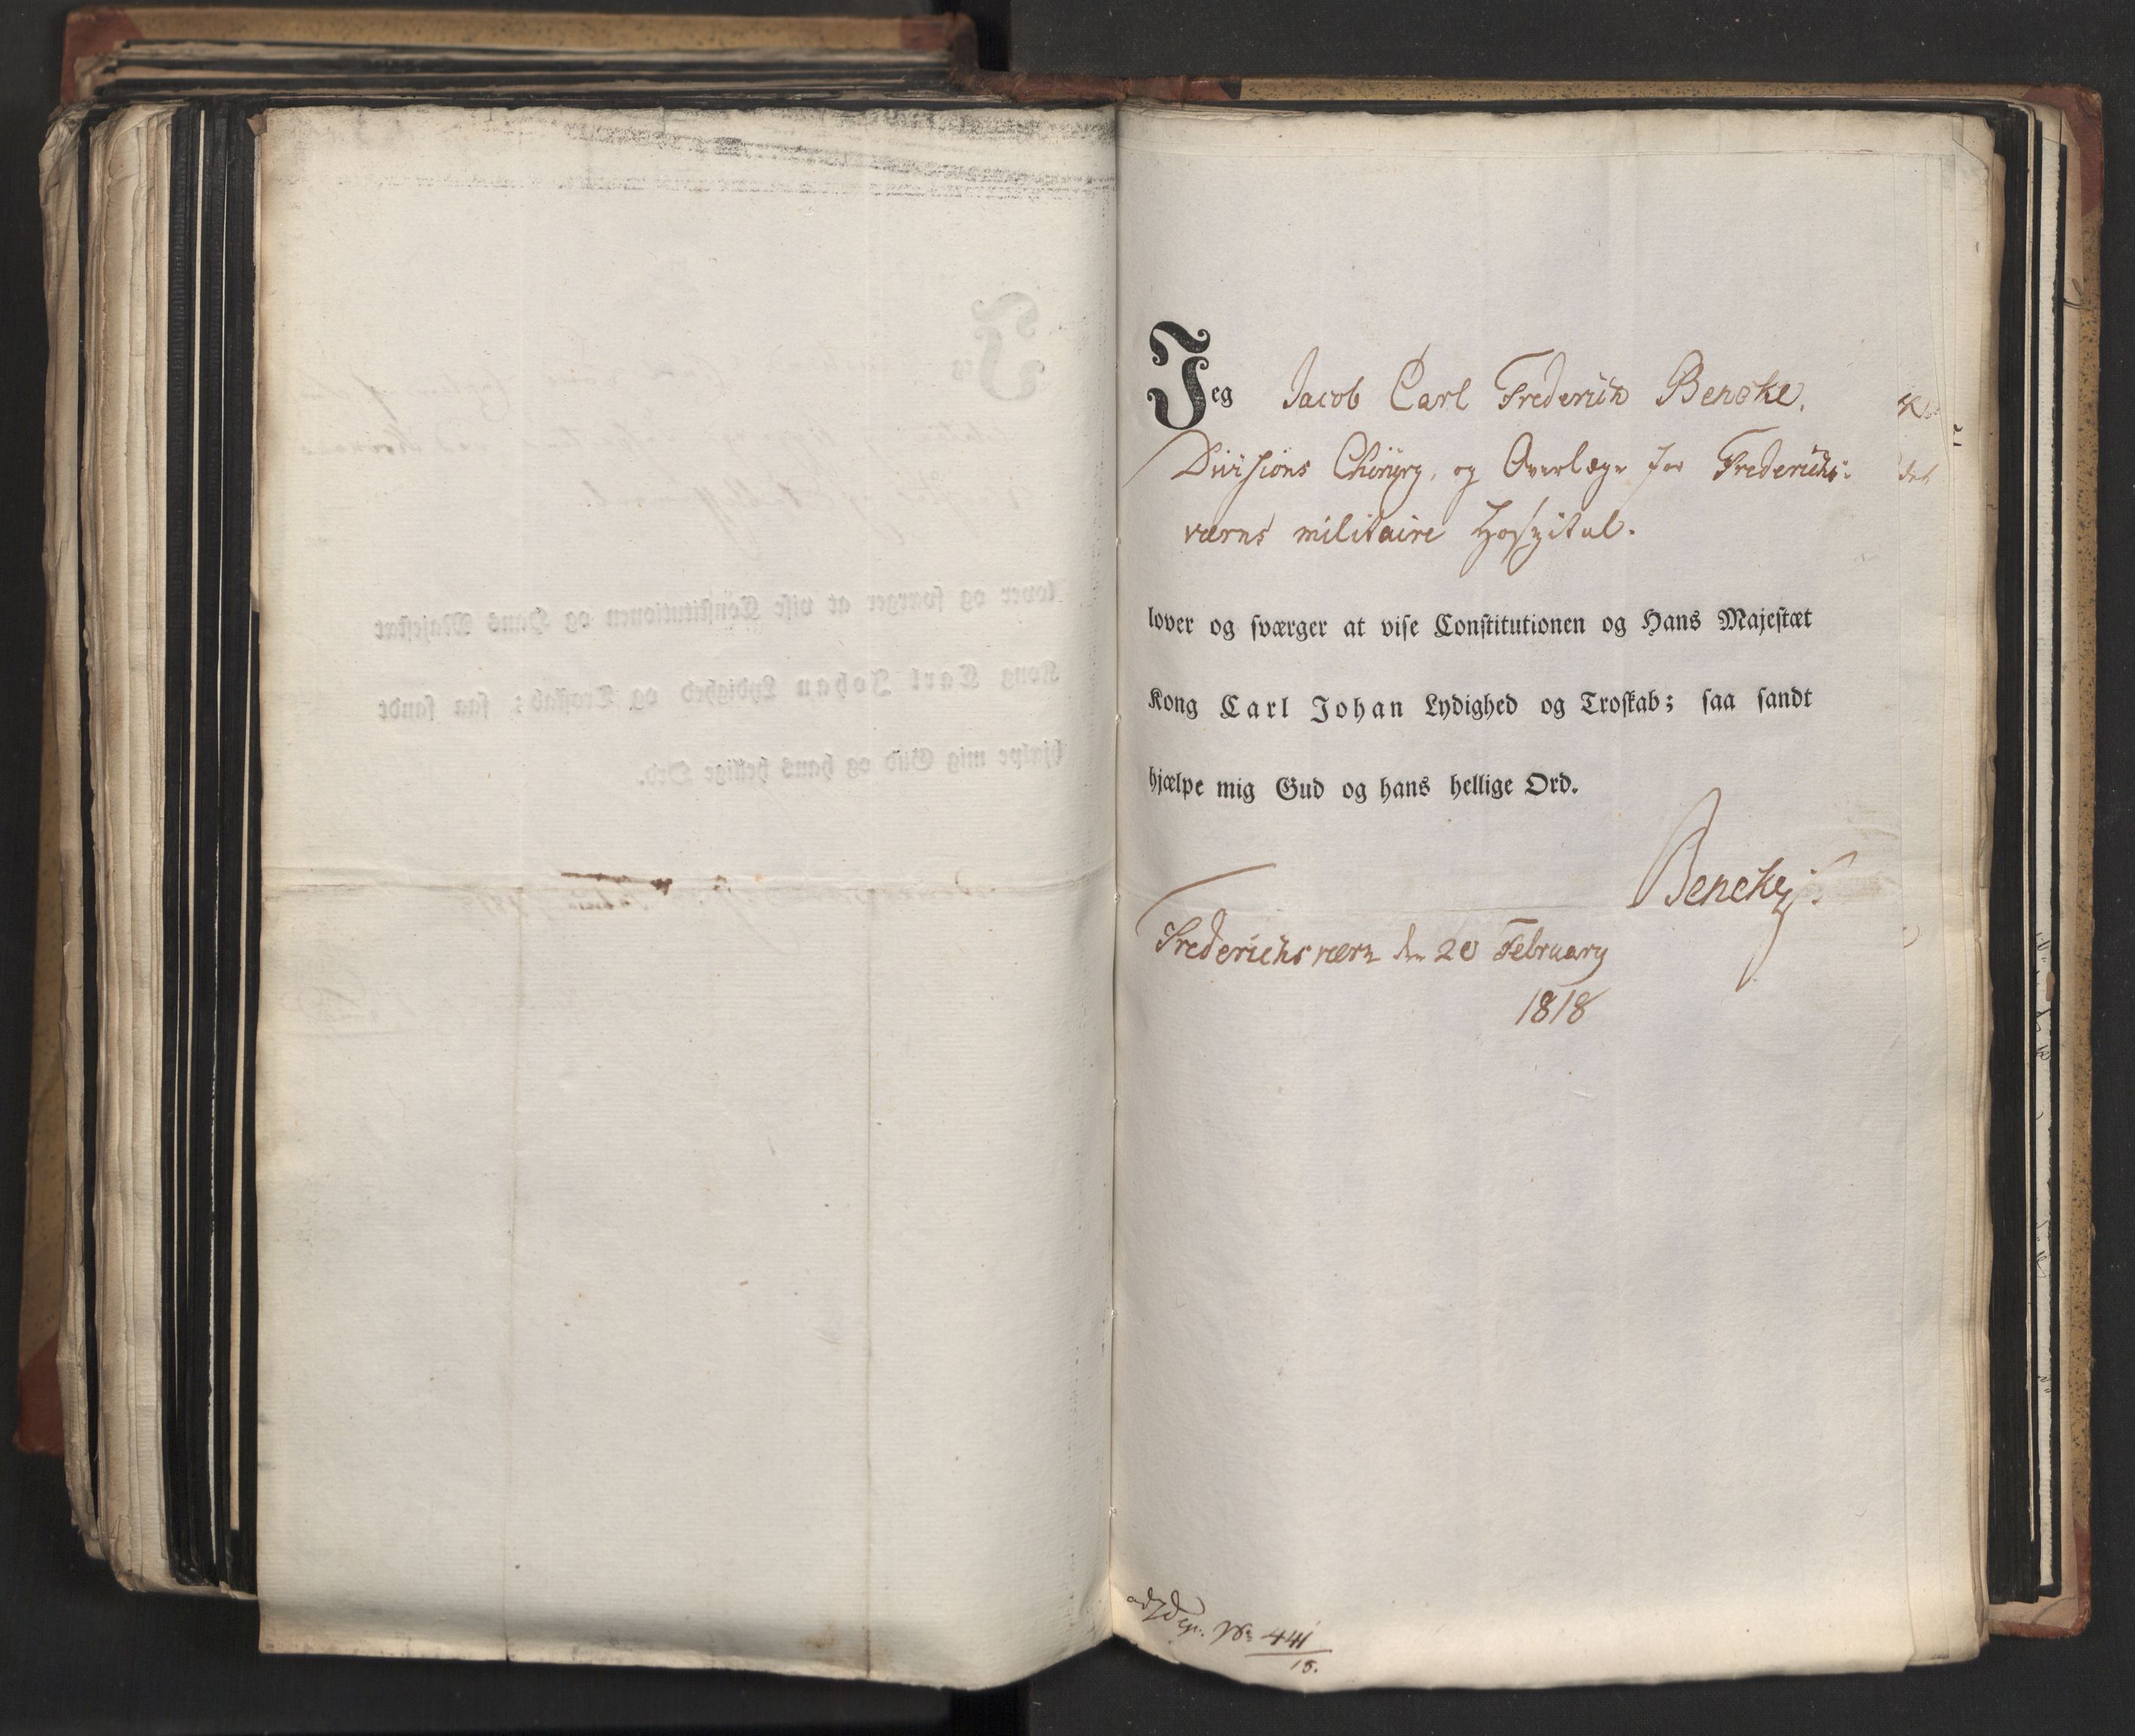 Jeg Jacob Carl Frederich Beneke.
Divisions Chirurg, og Overlæge for Frederichs-
værns militaire Hospital.
lover og sværger at vise Constitutionen og Hans Majestæt
Kong Carl Johan Lydighed og Troskab; saa sandt
hjælpe mig Gud og hans hellige Ord.
Beneke
Frederichsværn den 20 February
1818
No 441
18.